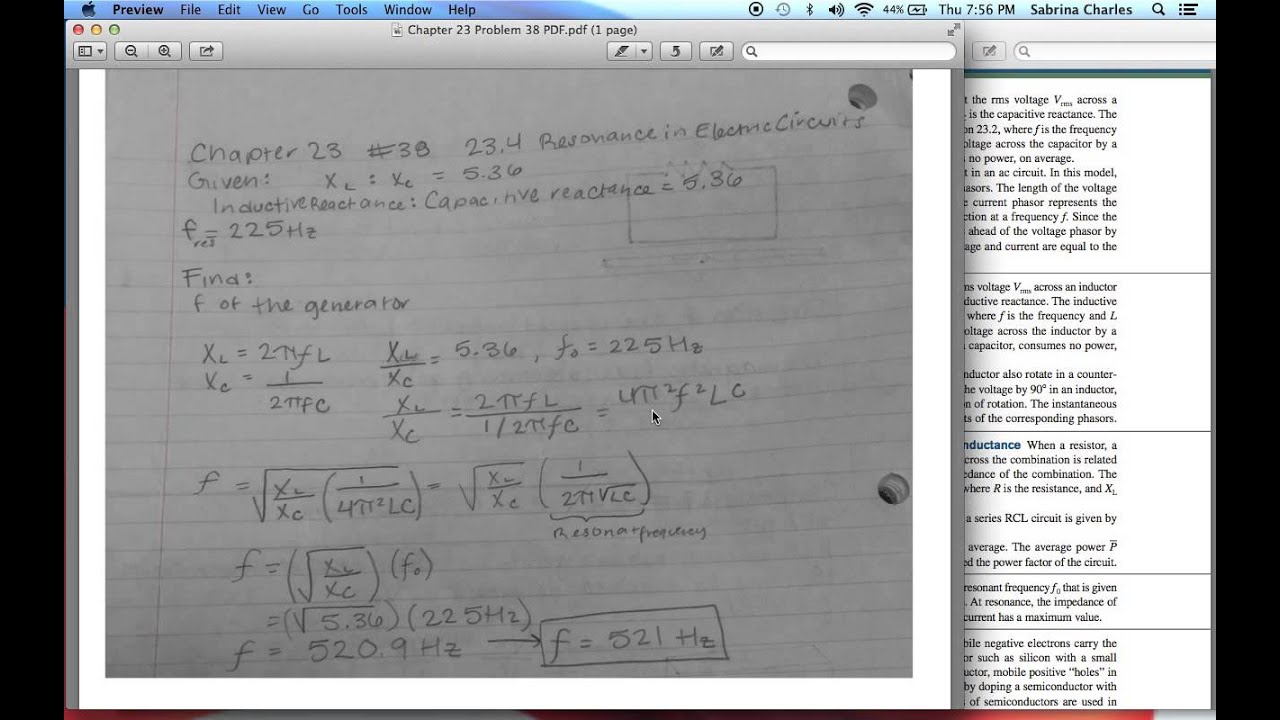 Preview File Edit View Go Tools Window Help 44% Thu 7:56 PM Sabrina Charles
Chapter 23 Problem 38 PDF.pdf (1 page)
Chapter 23 #38 23.4 Resonance in Electric Circuits
Given: XL : Xc = 5.36
Inductive Reactance: Capacitive reactance = 5.36
fres = 225 Hz
Find:
f of the generator
XL = 2πfL XL/XC = 5.36, f₀ = 225 Hz
XC = 1/2πfC
XL/XC = 2πfL / 1/2πfC = 4π²f²LC
f = √XL/XC (1/4π²LC) = √XL/XC (1/2π√LC)
Resonant frequency
f = (√XL/XC)(f₀)
= (√5.36)(225Hz)
f = 520.9 Hz → f = 521 Hz
t the rms voltage Vrms across a
is the capacitive reactance. The
n 23.2, where f is the frequency
oltage across the capacitor by a
no power, on average.
t in an ac circuit. In this model,
asors. The length of the voltage
e current phasor represents the
ction at a frequency f. Since the
ahead of the voltage phasor by
age and current are equal to the
ms voltage Vrms across an inductor
ductive reactance. The inductive
where f is the frequency and L
oltage across the inductor by a
capacitor, consumes no power,
nductor also rotate in a counter-
he voltage by 90° in an inductor,
on of rotation. The instantaneous
ts of the corresponding phasors.
nductance When a resistor, a
cross the combination is related
edance of the combination. The
where R is the resistance, and XL
a series RCL circuit is given by
average. The average power P̅
ed the power factor of the circuit.
resonant frequency f₀ that is given
. At resonance, the impedance of
current has a maximum value.
bile negative electrons carry the
or such as silicon with a small
ductor, mobile positive “holes” in
by doping a semiconductor with
of semiconductors are used in